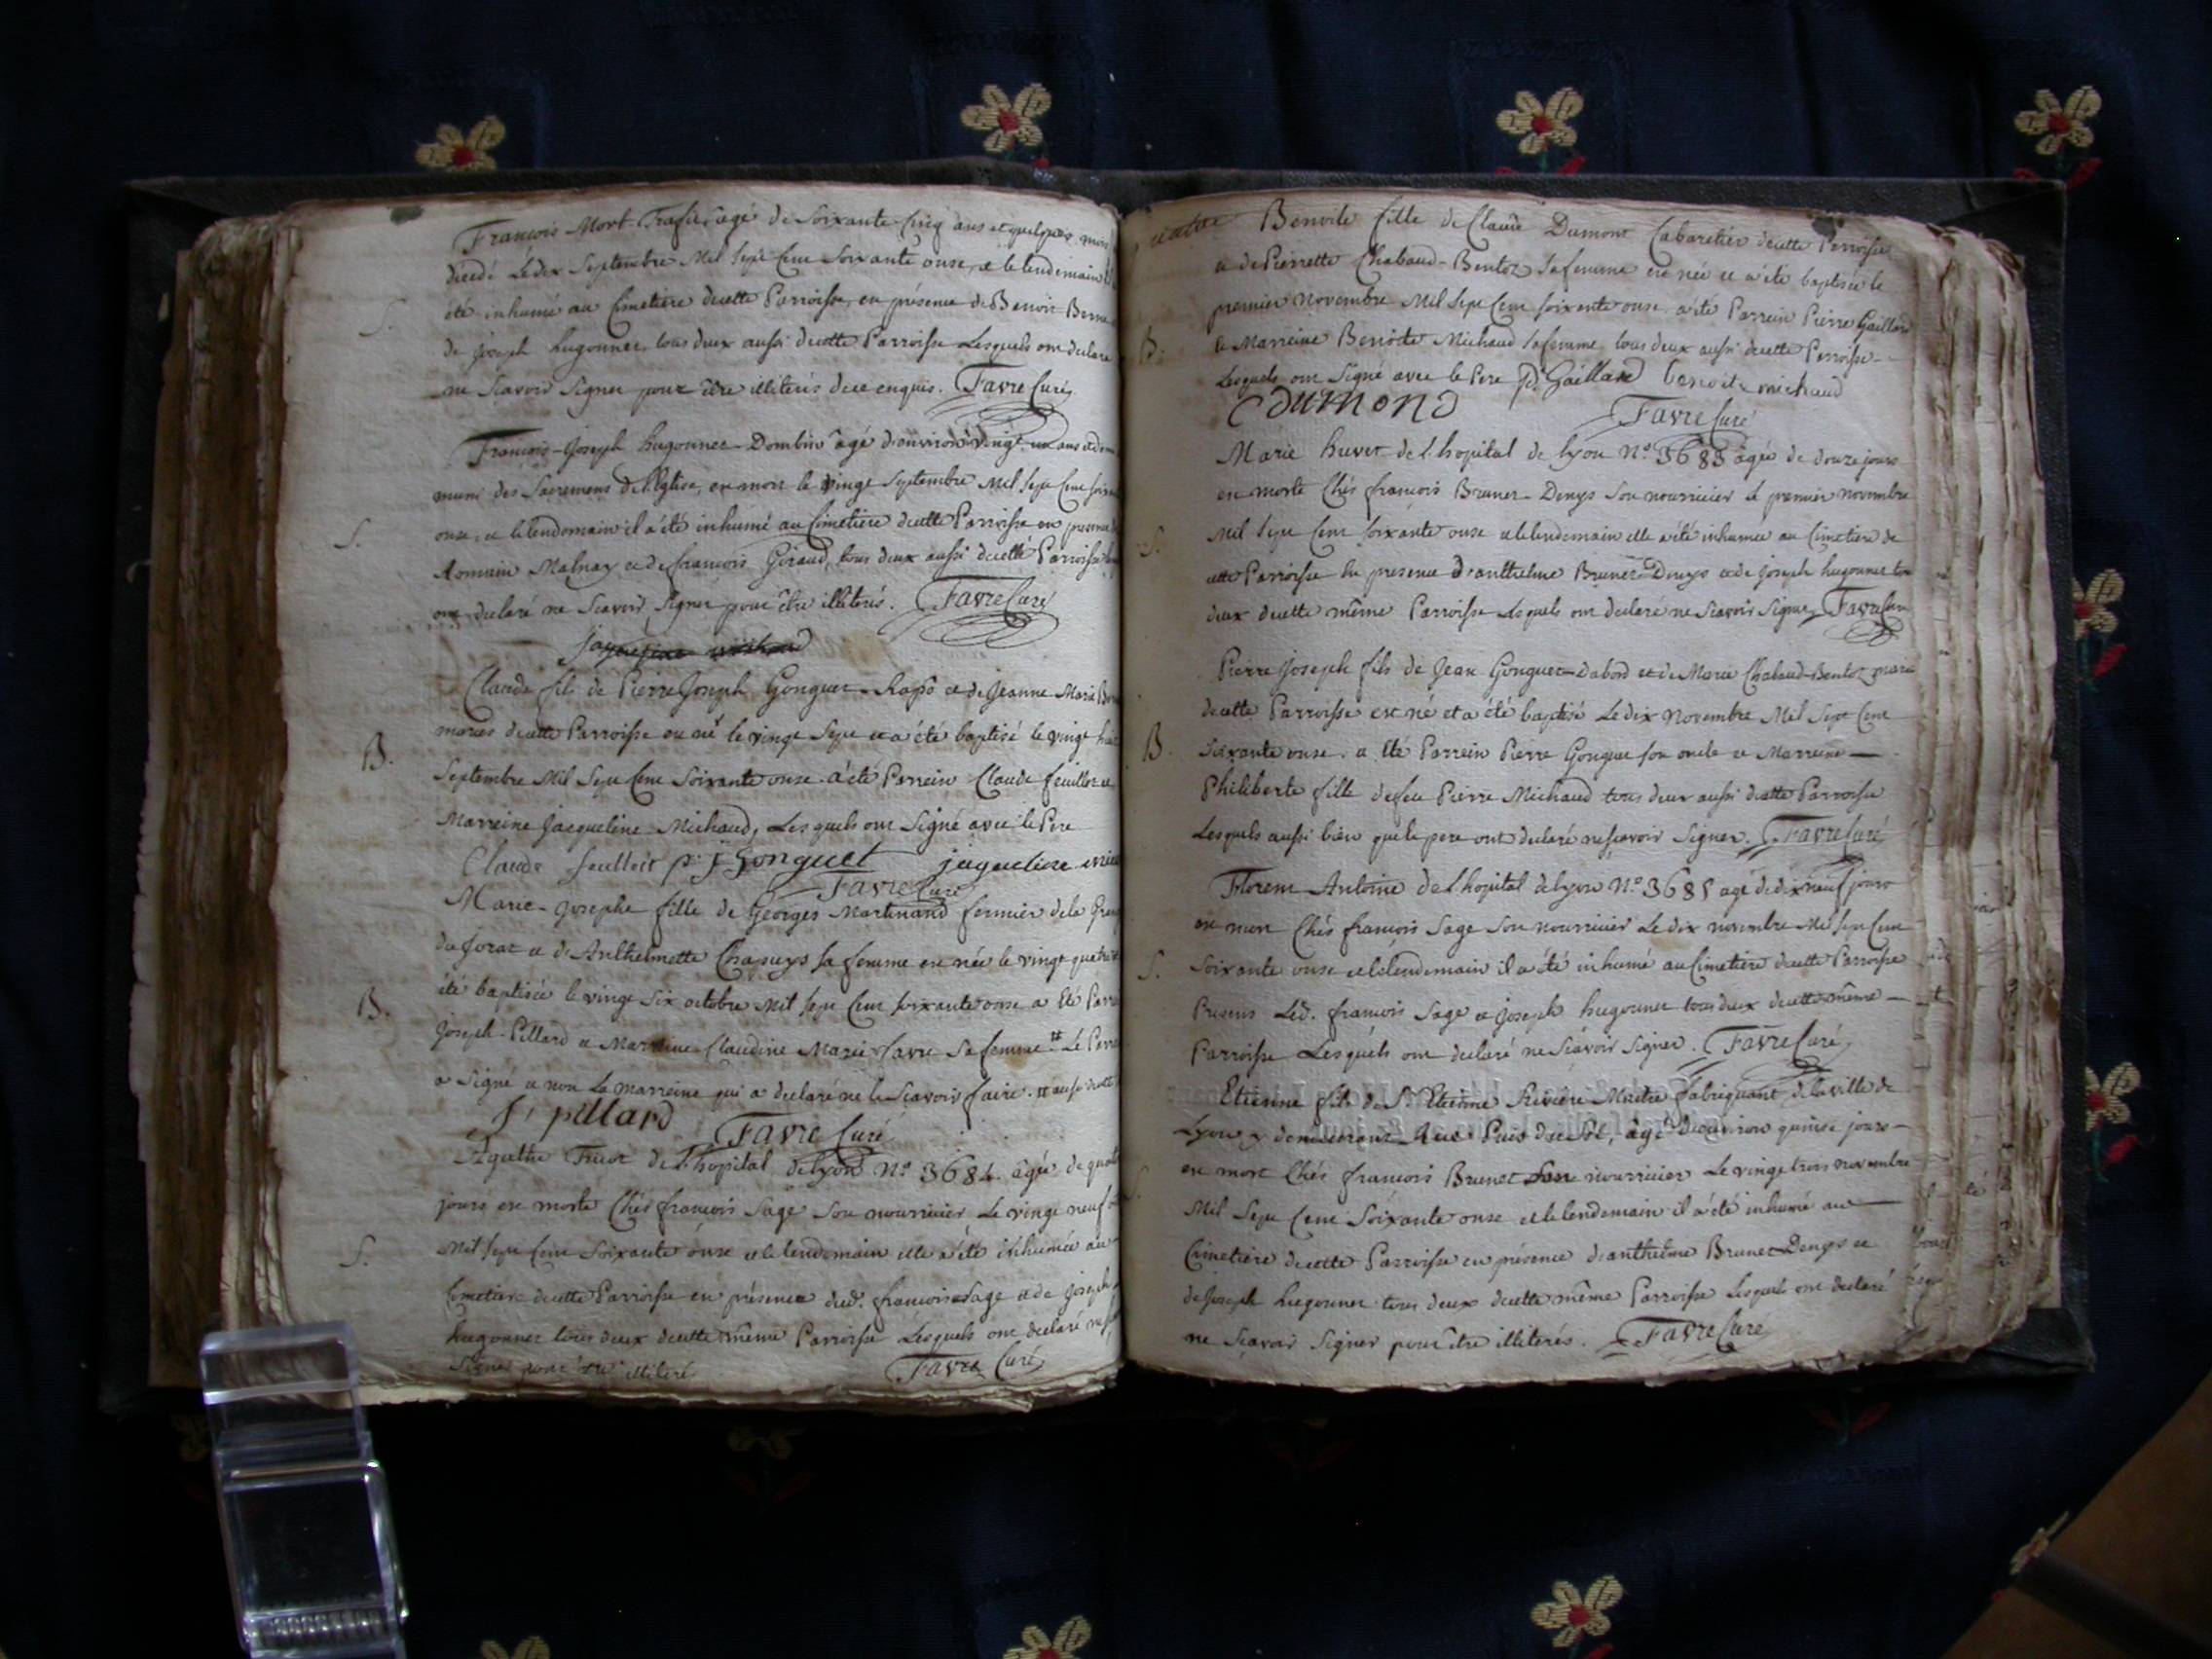 François Mort-Trafit, agé de Soixante-Cinq ans et quelques mois
décédé Le dix Septembre Mil Sept Cent Soixante onse, et le lendemain il a
été inhumé au Cimetiere decette Parroisse, en présence de Benoit
S.
de joseph hugonnet tous deux aussi decette Parroisse Lesquels ont déclaré
ne Sçavoir Signer pour être illiterés de ce enquis. Favre Curé
François-Joseph hugonnet-Dombin âgé d'environ vingt un ans et demi
muni des Sacremens de l'Eglise, est mort le vingt Septembre Mil Sept Cent soixante
S.
onse, et le lendemain il a été inhumé au Cimetiere decette Parroisse en presence de
Romain Malnay et de françois Giraud, tous deux aussi decette Parroisse
ont declaré ne Scavoir Signer pour être illiterés. Favre Curé
Claude fils de Pierre Joseph Gonguet-Raffo et de Jeanne Marie
mariés decette Parroisse est né le vingt Sept et a été baptisé le vingt huit
B.
Septembre Mil Sept Cent Soixante onse. a été Parrein Claude feuillet et
Marreine Jacqueline Michaud, Lesquels ont Signé avec le Pere
Claude feulleit p: j Gonguet jaqueline
Favre Curé
Marie-Josephe fille de Georges Martinand fermier de la
du forat et d'Anthelmette Chapuys sa femme est née le vingt quatre
B.
été baptisée le vingt Six octobre Mil Sept Cent Soixante onse a Eté Parrein
Joseph Pillard et Marreine Claudine Marie favre Sa femme ⌗ Le Parrein
a Signé et non La marreine qui a declaré ne le Scavoir faire. ⌗ aussi decette
J, pillard Favre Curé
Agathe de l'hopital de lyon N.º 3684. âgée de
jours est morte Chés françois Sage Son nourricier Le vingt neuf
S.
Mil Sept Cent Soixante onse et le lendemain elle a été inhumée au
Cimetiere decette Parroisse en présence dud. françois Sage et de Joseph
hugonnet tous deux decette même Parroisse Lesquels ont declaré ne
Signer pour être illiteré Favre Curé
Benoite fille de Claude Dumont Cabaretier decette Parroisse
et de Pierrette Chabaud-Bentoz sa femme est née et a été baptisée le
premier Novembre Mil Sept Cent soixante onse a été Parrein Pierre Gaillard
B.
et Marreine Benoite Michaud sa femme tous deux aussi decette Parroisse
Lesquels ont Signé avec le Pere P. Gaillard benoite michaud
C dumond
Favre Curé
Marie huvet de l'hopital de lyon N.º 3685 âgée de douze jours
est morte Chés françois Brunet-Denys son nourricier Le premier novembre
S.
Mil Sept Cent soixante onse et le lendemain elle a été inhumée au Cimetiere de
cette Parroisse En presence d'anthelme Brunet-Denys et de Joseph hugonnet tous
deux decette même Parroisse Lesquels ont declaré ne Scavoir Signer, Favre Curé
Pierre Joseph fils de Jean Gonguet-Dabord et de Marie Chabaud-Bentoz mariés
decette Parroisse est né et a été baptisé Le dix Novembre Mil Sept Cent
B.
Soixante onse. a Eté Parrein Pierre Gonguet son oncle et Marreine
Philiberte fille de feu Pierre Michaud tous deux aussi decette Parroisse
Lesquels aussi bien que le pere ont declaré ne scavoir Signer. Favre Curé
Florent Antoine de L'hopital de lyon N.º 3685 agé de dix neuf jours
est mort Chés françois Sage Son nourricier Le dix novembre Mil Sept Cent
S.
Soixante onse et le lendemain il a été inhumé au Cimetiere decette Parroisse
Presens Led. françois Sage et Joseph hugonnet tous deux decette même
Parroisse Lesquels ont declaré ne Scavoir Signer. Favre Curé
Etienne fils de S. Etienne Riviere Maitre fabriquant de la ville de
Lyon y demeurant Rue Puis du Sel, agé d'environ quinse jours
est mort Chés françois Brunet Son nourricier Le vingt trois novembre
S.
Mil Sept Cent Soixante onse et le lendemain il a été inhumé au
Cimetiere decette Parroisse en présence d'anthelme Brunet-Denys et
de Joseph hugonnet tous deux decette même Parroisse Lesquels ont declaré
ne Scavoir Signer pour être illiterés. Favre Curé